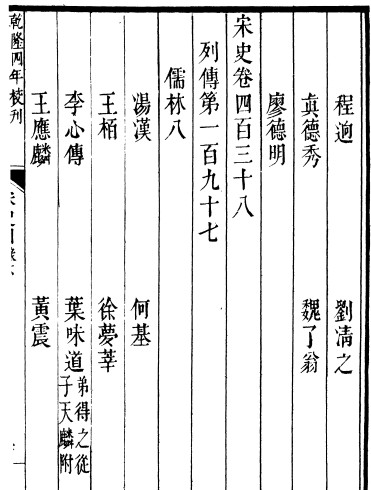 程迥 劉清之
真德秀 魏了翁
廖德明
宋史卷四百三十八
列傳第一百九十七
儒林八
湯漢 何基
王柏 徐夢莘
李心傳 葉味道弟得之從子天麟附
王應麟 黃震
乾隆四年校刊